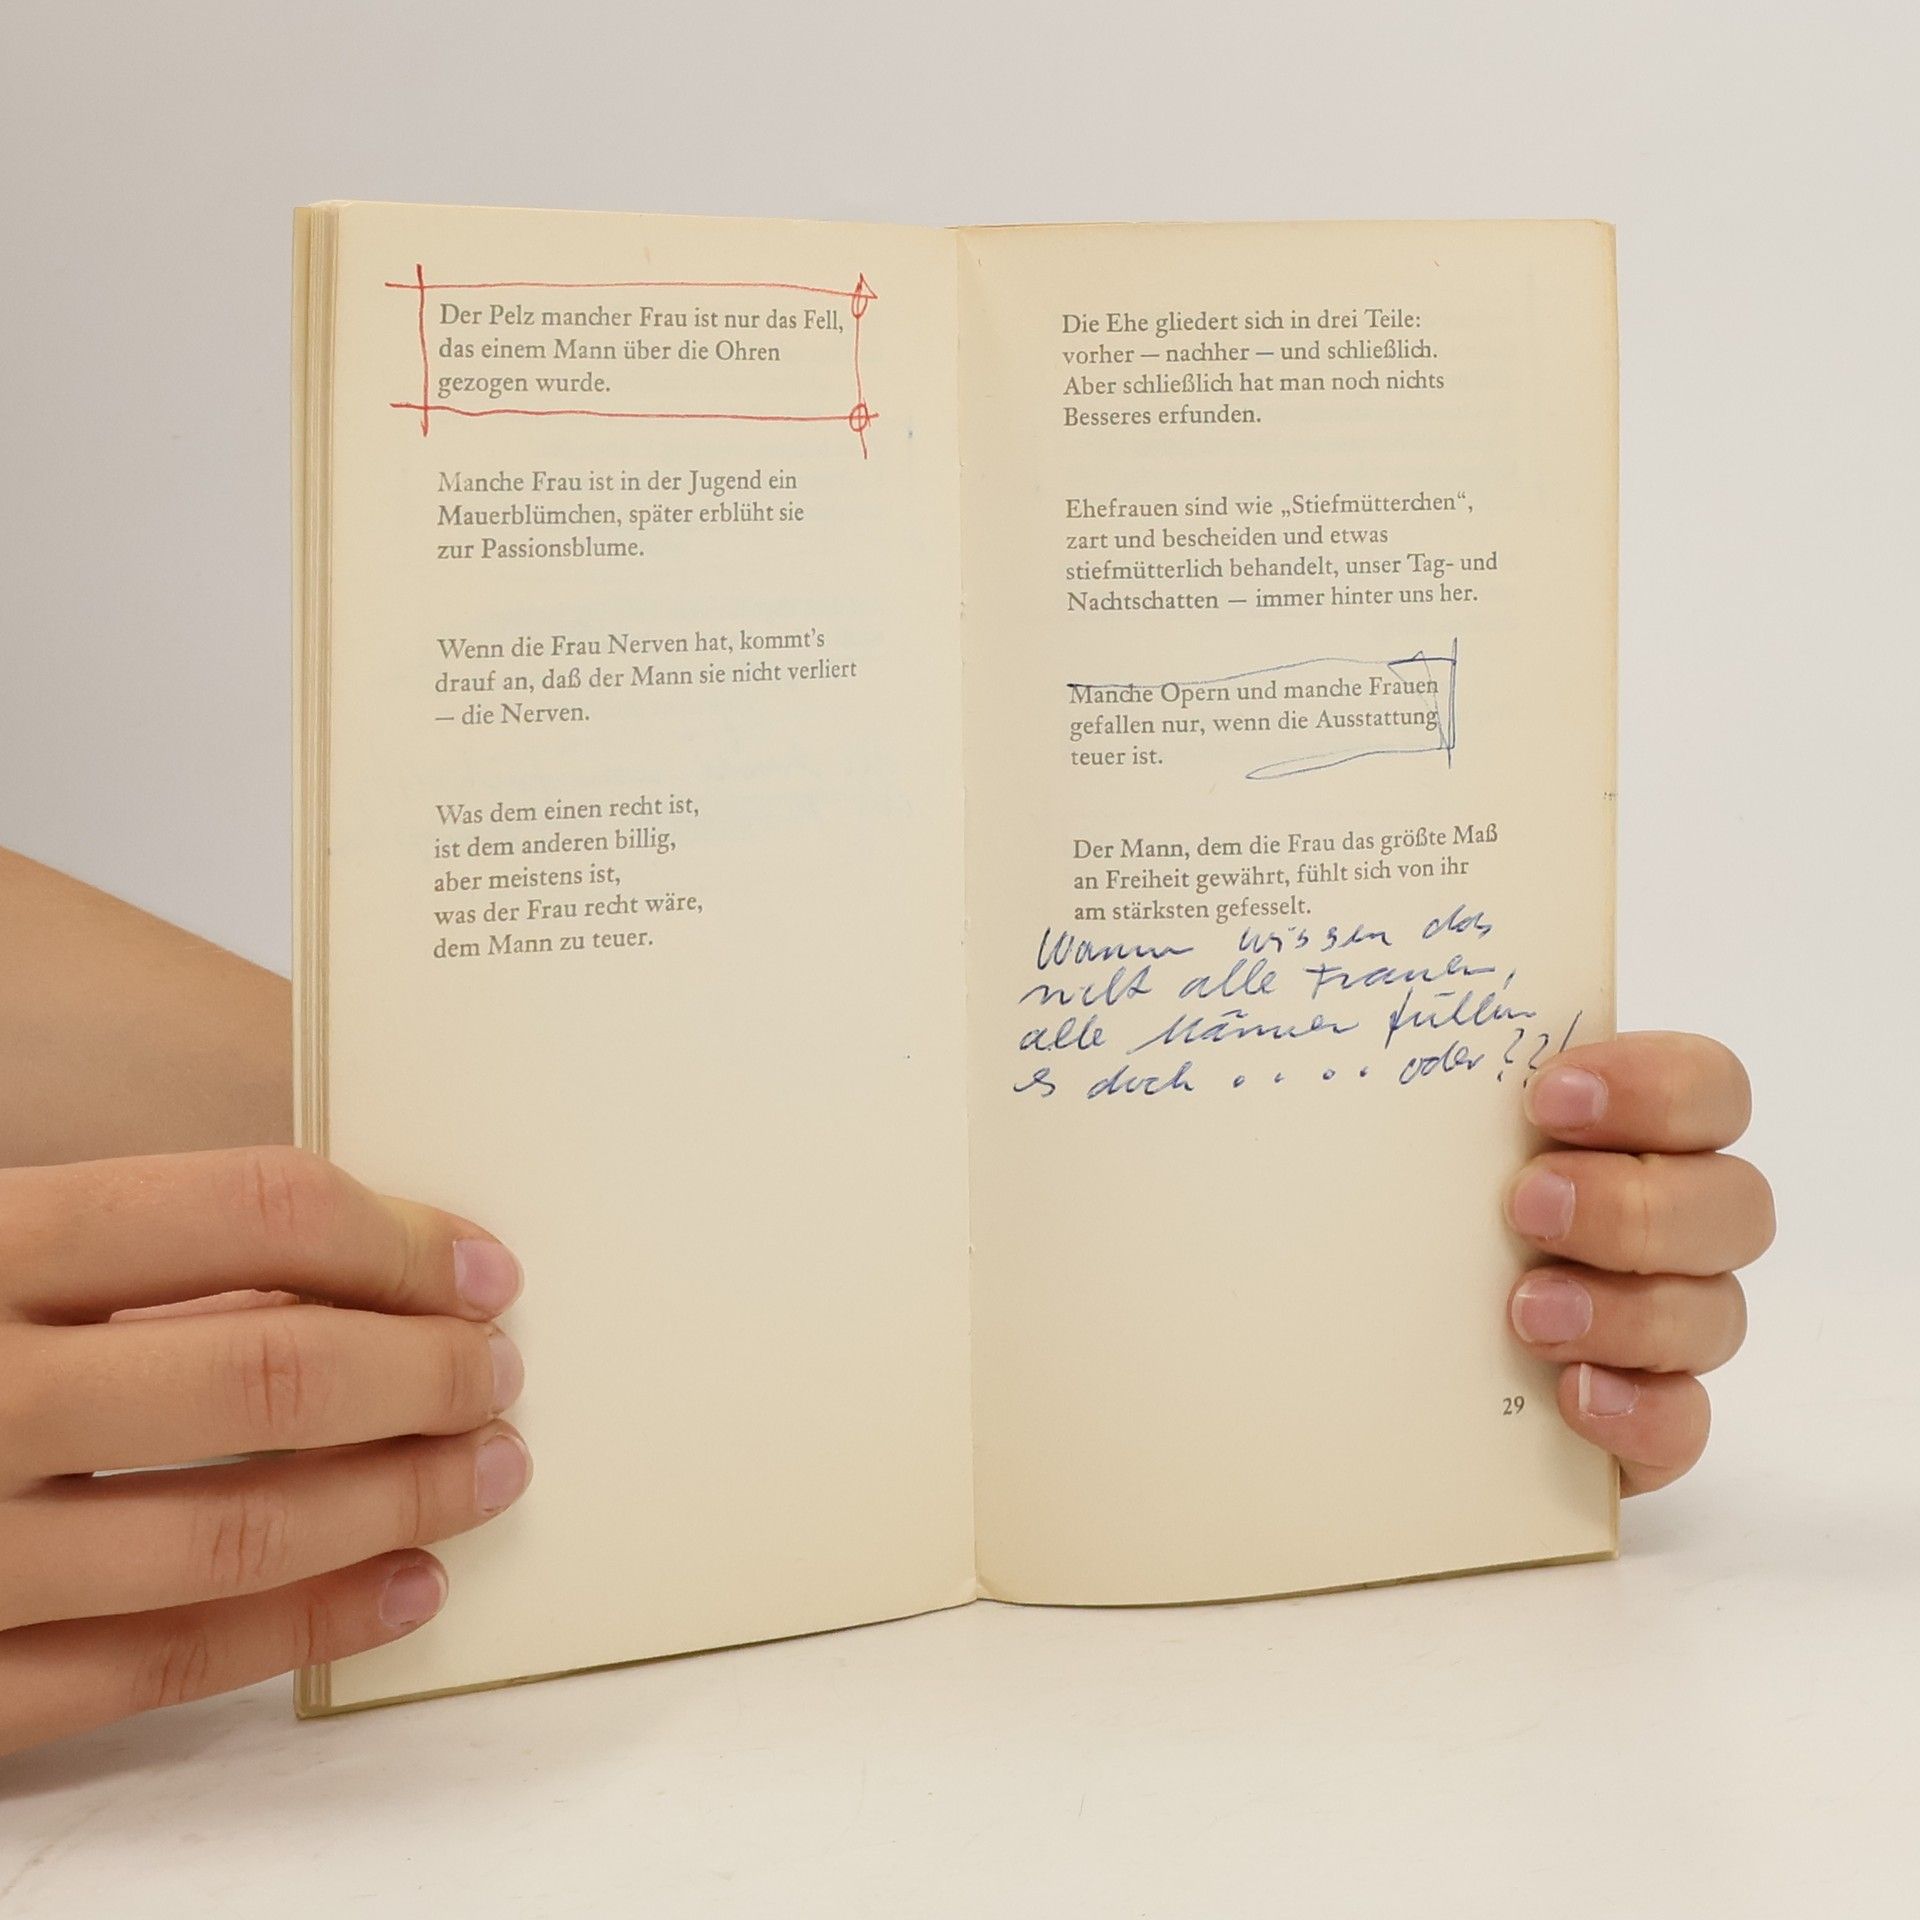 Der Pelz mancher Frau ist nur das Fell,
das einem Mann über die Ohren
gezogen wurde.
Manche Frau ist in der Jugend ein
Mauerblümchen, später erblüht sie
zur Passionsblume.
Wenn die Frau Nerven hat, kommt's
drauf an, daß der Mann sie nicht verliert
— die Nerven.
Was dem einen recht ist,
ist dem anderen billig,
aber meistens ist,
was der Frau recht wäre,
dem Mann zu teuer.
Die Ehe gliedert sich in drei Teile:
vorher — nachher — und schließlich.
Aber schließlich hat man noch nichts
Besseres erfunden.
Ehefrauen sind wie „Stiefmütterchen“,
zart und bescheiden und etwas
stiefmütterlich behandelt, unser Tag- und
Nachtschatten — immer hinter uns her.
Manche Opern und manche Frauen
gefallen nur, wenn die Ausstattung
teuer ist.
Der Mann, dem die Frau das größte Maß
an Freiheit gewährt, fühlt sich von ihr
am stärksten gefesselt.
wissen das
nicht alle Frauen,
alle Männer fühlen
es doch . . . . oder ??!
29